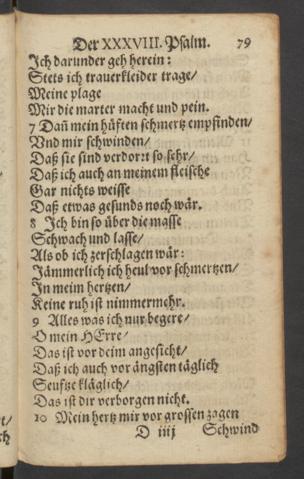 Der XXXVIII. Psalm. 79
Ich darunder geh herein:
Stets ich trauerkleider trage/
Meine plage
Mir die marter macht und pein.
7 Dañ mein hüften schmertz empfinden/
Vnd mir schwinden/
Daß sie sind verdorrt so sehr/
Daß ich auch an meinem fleische
Gar nichts weisse
Daß etwas gesunds noch wär.
8 Ich bin so über die masse
Schwach und lasse/
Als ob ich zerschlagen wär:
Jämmerlich ich heul vor schmertzen/
In meim hertzen/
Keine ruh ist nimmermehr.
9 Alles was ich nur begere/
O mein HErre/
Das ist vor deim angesicht/
Daß ich auch vor ängsten täglich
Seuftze kläglich/
Das ist dir verborgen nicht.
10 Mein hertz mir vor grossen zagen
D iiij Schwind